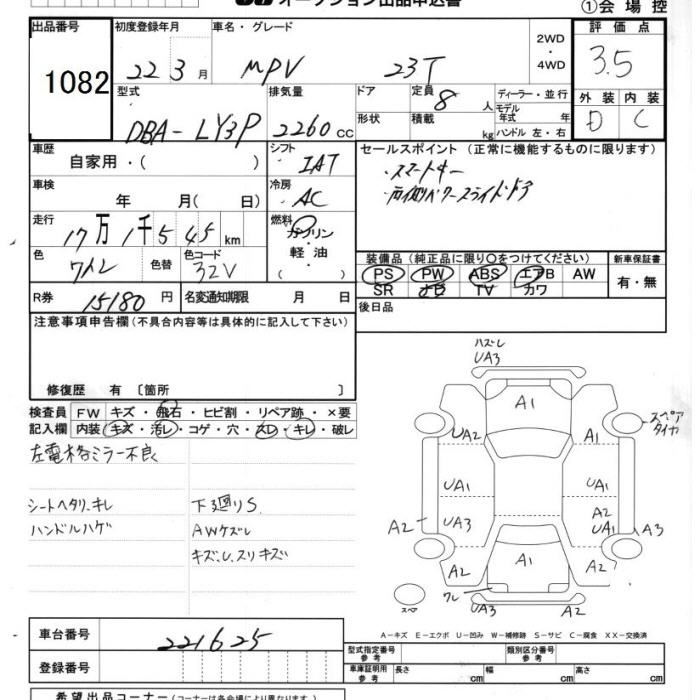 オークション出品申込書
①会場控
出品番号 初度登録年月 車名・グレード 2WD・4WD 評価点
1082 22 3月 MPV 23T 3.5
型式 排気量 ドア 定員 8人 ディーラー・並行 外装 内装
DBA-LY3P 2260cc 形状 積載 kg モデル年式 年 D C
ハンドル 左・右
車歴 シフト セールスポイント (正常に機能するものに限ります)
自家用・( ) IAT ・スマートキー
車検 冷房 ・両側パワースライドドア
年 月( 日) AC
走行 燃料
17万1千545km ガソリン
軽油
( )
色 色替 色コード 装備品(純正品に限り○をつけてください) 新車保証書
ワイン 32V PS PW ABS エアB AW 有・無
SR ナビ TV カワ
R券 15180円 名変通知期限 月 日 後日品
注意事項申告欄(不具合内容等は具体的に記入して下さい)
修復歴 有 〔箇所 〕
検査員 FW キズ・飛石・ヒビ割・リペア跡・×要
記入欄 内装 キズ・汚レ・コゲ・穴・スレ・キレ・破レ
左電格ミラー不良
シートヘタリ、キレ 下廻りS
ハンドルハゲ AWケズレ
キズ、U、スリキズ
ハズレ
UA3
A1
スペアタイヤ
UA2 A1
UA1 UA1
UA3 A2
UA1
A2 A3
A2 A1 A2
ワレ
スペア UA3 A2
A-キズ E-エクボ U-凹み W-補修跡 S-サビ C-腐食 XX-交換済
車台番号 221625
型式指定番号 参考 類別区分番号 参考
登録番号
車庫証明用 参考 長さ cm 幅 cm 高さ cm
希望出品コーナー(コーナーは各会場により異なります)